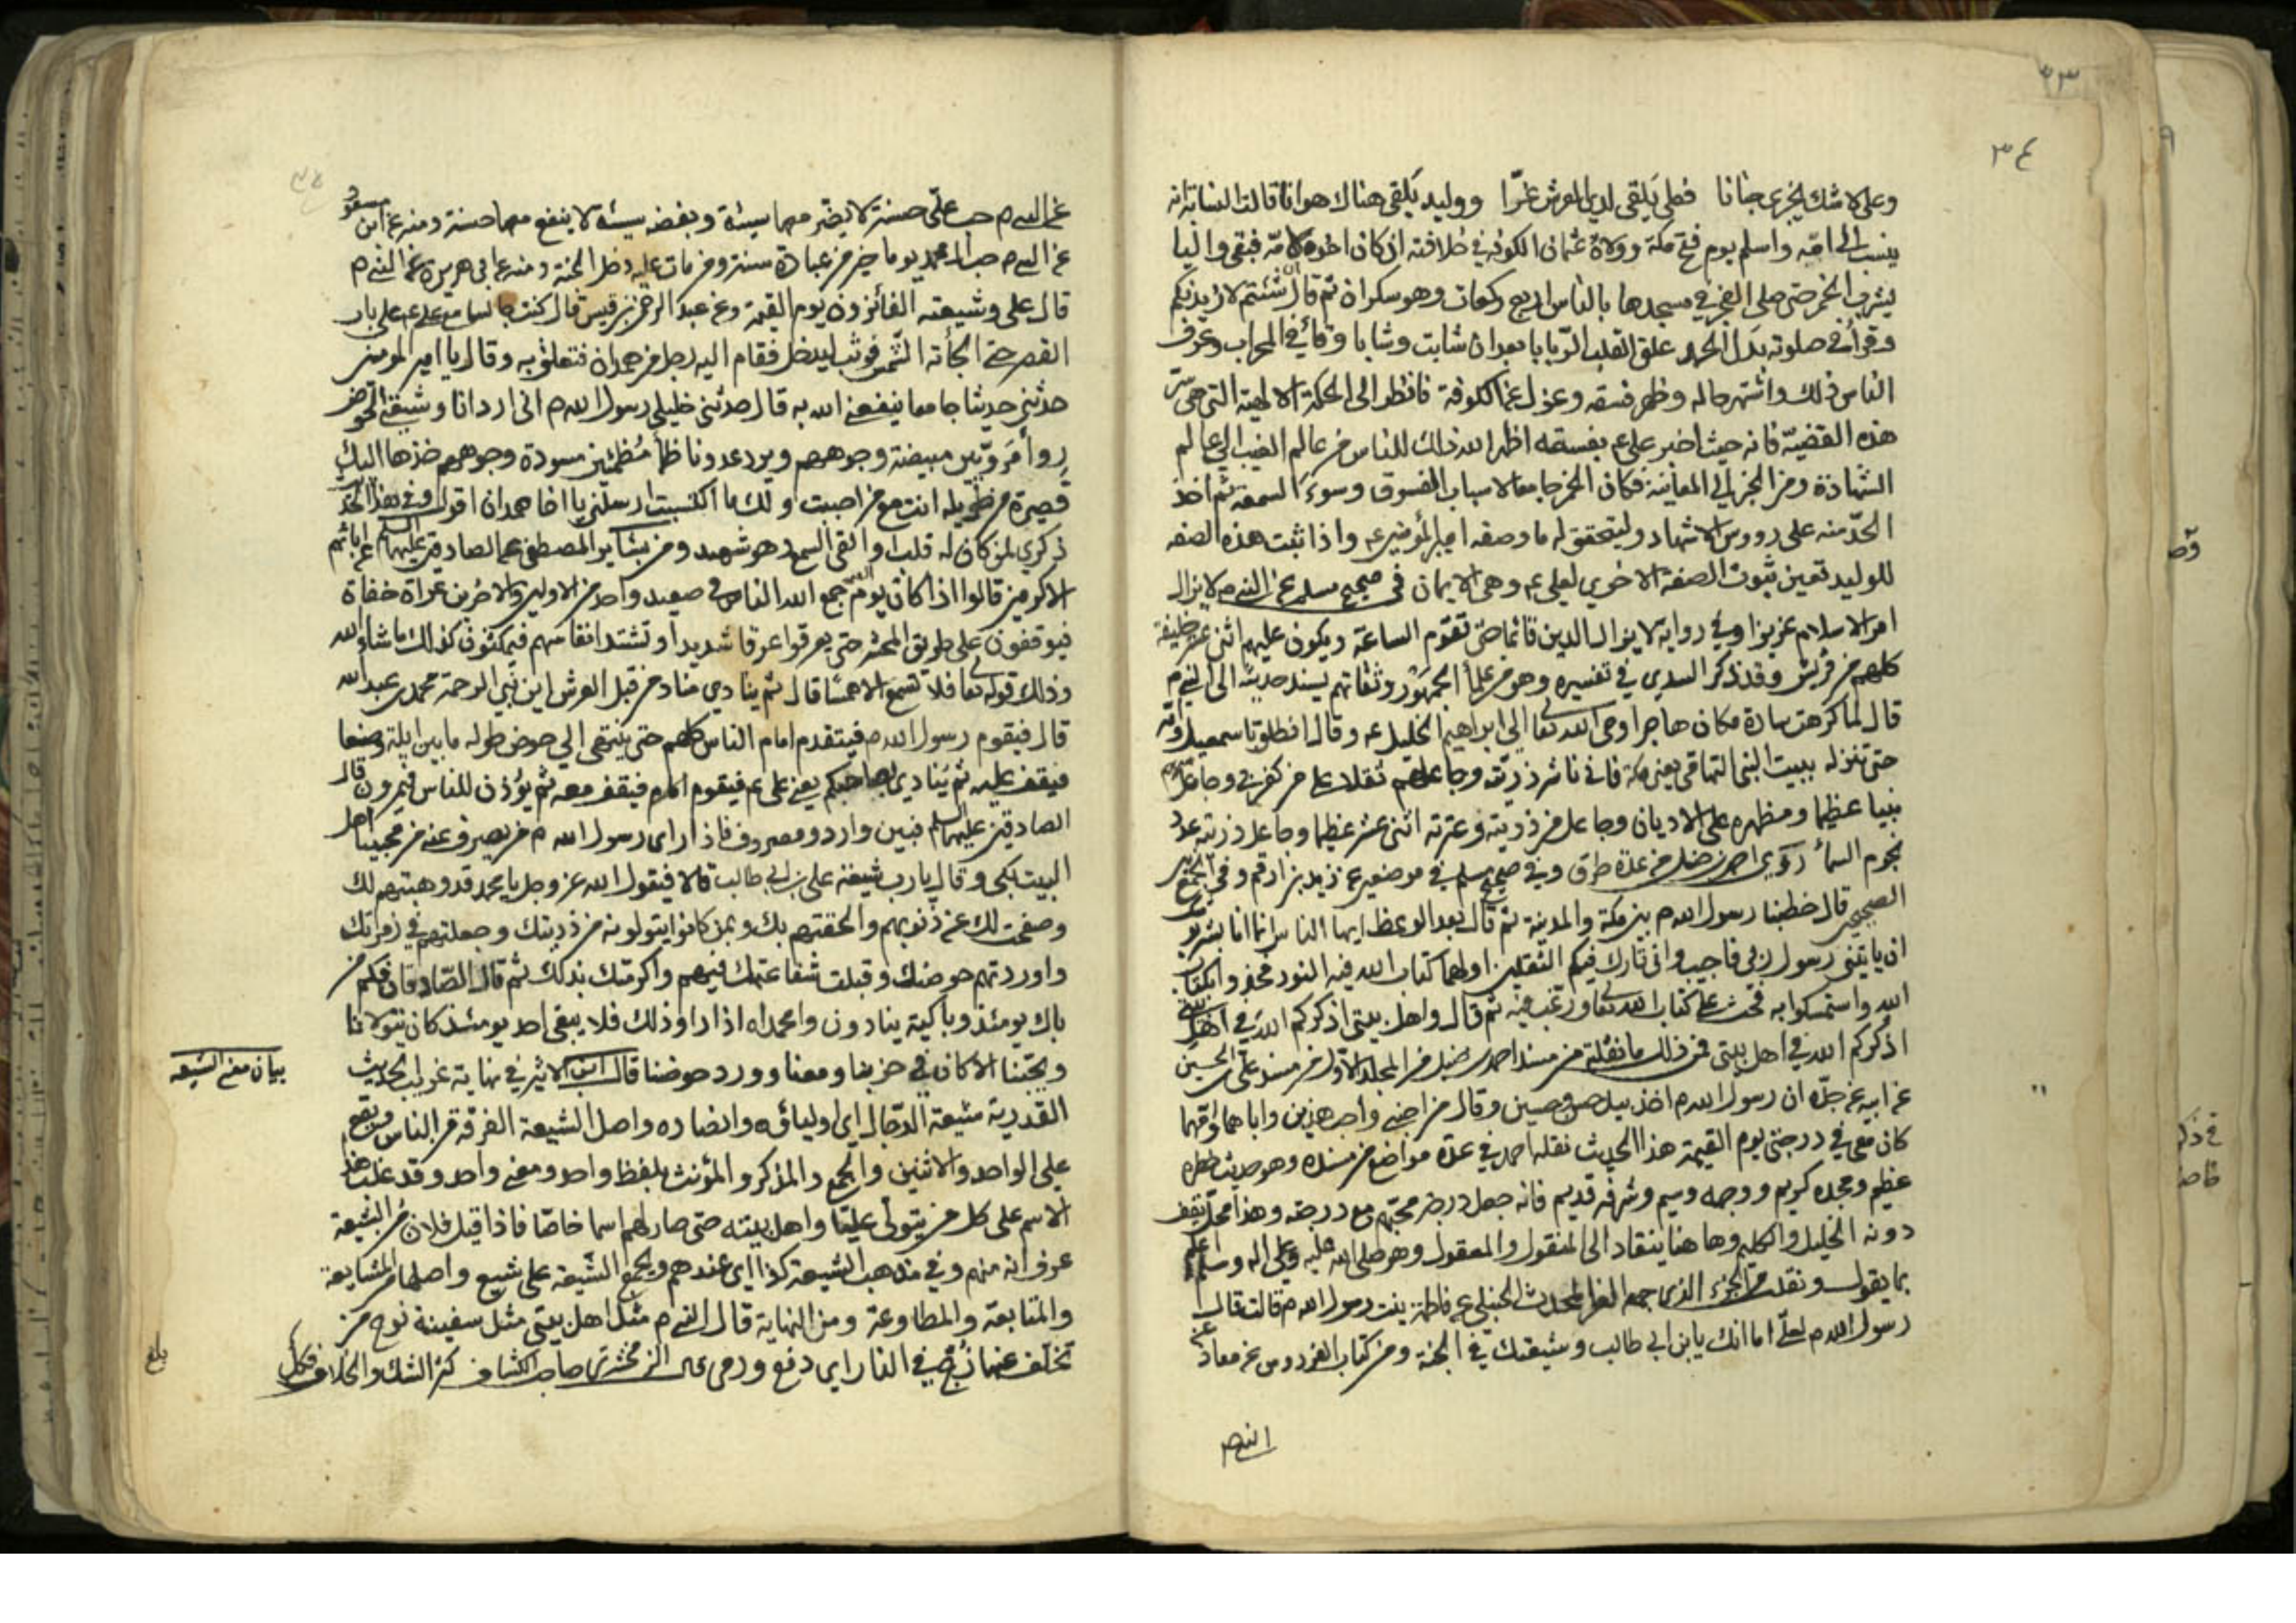 ٣٤
وعلي لا شك يجزى جنانا فعلي يلقى لدى العرش عزّا ووليد يلقى هناك هوانا قالت النسابة انه
ينسب الى امّه واسلم يوم فتح مكة وولاه عثمان الكوفة في خلافته اذ كان اخوه لامّه فبقي واليا
يشرب الخمر حتى صلى الفجر في مسجدها بالناس اربع ركعات وهو سكران ثم قال ان شئتم لازيدنكم
وقرأ في صلوته بدل الحمد علق القلب الرّبابا بعد ان شابت وشابا وقاء في المحراب وعرف
الناس ذلك واشتهر حاله وظهر فسقه وعزل عن الكوفة فانظر الى الحكمة الالهية التي هي سرّ
هذه القضيّة فانه حيث اخبر علي ع بفسقه اظهر الله ذلك للناس من عالم الغيب الي عالم
الشهادة ومن الخبر الي المعاينة فكان الخمر جامعا لاسباب الفسوق وسوء السمعة ثم اخذ
الحدّ منه على رووس الاشهاد وليتحقق له ما وصفه امير المؤمنين ع واذا ثبت هذه الصفه
للوليد تعين ثبوت الصفة الاخري لعلي ع وهي الايمان في صحيح مسلم عن النبي م لا يزال
امر الاسلام عزيزا وفي رواية لا يزال الدين قائما حتى تقوم الساعة ويكون عليهم اثنى عشر خليفة
كلهم من قريش وقد ذكر السدي في تفسيره وهو من علماء الجمهور وثقاتهم يسند حديثه الى النبي م
قال لما كرهت سارة مكان هاجر اوحى الله تعالى الي ابراهيم الخليل ع وقال انطلق باسمعيل وامّه
حتى تنزله ببيت النبي التهامي يعني مكة فاني ناشر ذريته وجاعلهم ثقلا على من كفر بي وجاعل منهم
نبيا عظيما ومظهره على الاديان وجاعل من ذريته وعترته اثنى عشر عظيما وجاعل ذريته عدد
نجوم السماء روى احمد بن حنبل من عدة طرق وفي صحيح مسلم في موضعين عن زيد بن ارقم وفي الجمع بين
الصحيحين قال خطبنا رسول الله م بين مكة والمدينة ثم قال بعد الوعظ ايها الناس انما انا بشر يوشك
ان ياتيني رسول ربي فاجيب واني تارك فيكم الثقلين اولهما كتاب الله فيه النور فخذوا بكتاب
الله واستمسكوا به فحث على كتاب الله تعالى ورغب فيه ثم قال واهل بيتي اذكركم الله في اهل بيتي
اذكركم الله في اهل بيتي فمن ذلك ما نقلته من مسند احمد بن حنبل من المجلد الاول من مسند علي بن الحسين
عن ابيه عن جدّه ان رسول الله م اخذ بيد حسن وحسين وقال من احبني واحب هذين واباهما وامّهما
كان معي في درجتي يوم القيمة هذا الحديث نقله احمد في عدّة مواضع من مسنده وهو حديث خطره
عظيم ومجده كريم ووجهه وسيم وشرفه قديم فانه جعل درجة محبّهم مع درجته وهذا محلّ يقف
دونه الخليل والكليم وها هنا ينقاد الى المنقول والمعقول وهو صلى الله عليه وعلى اله وسلم اعلم
بما يقول ونقلت من الجزء الذي جمعه العز المحدث الحنبلي عن فاطمة بنت رسول الله م قالت قال
رسول الله م لعليّ اما انك يابن ابي طالب وشيعتك في الجنة ومن كتاب الفردوس عن معاذ عن
النبي م
عن النبي م حب عليّ حسنة لا يضر معها سيئة وبغضه سيئة لا ينفع معها حسنة ومنه عن ابن مسعود
عن النبي م حب ال محمد يوما خير من عبادة سنة ومن مات عليه دخل الجنة ومنه عن ابي هريرة عن النبي م
قال علي وشيعته الفائزون يوم القيمة وعن عبد الرحمن بن قيس قال كنت جالسا مع علي ع على باب
القصر حتى الجأته الشّمس فوثب ليدخل فقام اليه رجل من همدان فتعلق به وقال يا امير المومنين
حدثني حديثا جامعا ينفعني الله به قال حدثني خليلي رسول الله م اني ارد انا وشيعتي الحوض
رواء مرويّين مبيضة وجوههم ويرد عدونا ظماء مظمئين مسودة وجوههم خذها اليك
قصيرة من طويله انت مع من احببت ولك ما اكتسبت ارسلني يا اخا همدان
ذكري لمن كان له قلب او القى السمع وهو شهيد ومن بشاير المصطفى عن الصادقين عليهم السلم عن اباءهم
الاكرمين قالوا اذا كان يوم القيمة جمع الله الناس في صعيد واحد من الاولين والاخرين عراة حفاة
فيوقفون على طريق المحشر حتى يعرقوا عرقا شديدا وتشتد انفاسهم فيمكثون كذلك ما شاء الله
وذلك قوله تعالى فلا تسمع الا همسا قال ثم ينادي مناد من قبل العرش اين نبي الرحمة محمد بن عبد الله
قال فيقوم رسول الله م فيتقدم امام الناس كلهم حتى ينتهي الي حوض طوله ما بين ايلة وصنعا
فيقف عليه ثم ينادي بصاحبكم يعني علي ع فيقوم امامهم فيقف معه ثم يؤذن للناس فيمرون قال
الصادقين عليهما السلم فبين وارد ومصروف فاذا راى رسول الله م من يصرف عنه من محبينا اهل
البيت بكى وقال يا رب شيعة علي بن ابي طالب قالا فيقول الله عز وجل يا محمد قد وهبتهم لك
وصفحت لك عن ذنوبهم والحقتهم بك وبمن كانوا يتولونه من ذريتك وجعلتهم في زمرتك
واوردتهم حوضك وقبلت شفاعتك فيهم واكرمتك بذلك ثم قال الصّادقان فكم من
باك يومئذ وباكية ينادون وا محمداه اذا راوا ذلك فلا يبقى احد يومئذ كان يتولانا
ويحبّنا الا كان في حزبنا ومعنا وورد حوضنا قال ابن الاثير في نهاية غريب الحديث
بيان معنى الشيعه
القدرية شيعة الدّجال اي اولياؤه وانصاره واصل الشيعة الفرقة من الناس ويقع
على الواحد والاثنين والجمع والمذكر والمؤنث بلفظ واحد ومعنى واحد وقد غلب هذا
الاسم على كل من يتولى عليّا واهل بيته حتى صار لهم اسما خاصّا فاذا قيل فلان من الشيعة
عرف انه منهم وفي مذهب الشيعة كذا اي عندهم ويجمع الشّيعة على شيع واصلها من المشايعة
والمتابعة والمطاوعة ومن النهاية قال النبي م مثل اهل بيتي مثل سفينة نوح من
تخلّف عنها زجّ في النار اي دفع ورمى قال الزمخشري صاحب الكشاف كثر الشك والخلاف فكل
بلغ